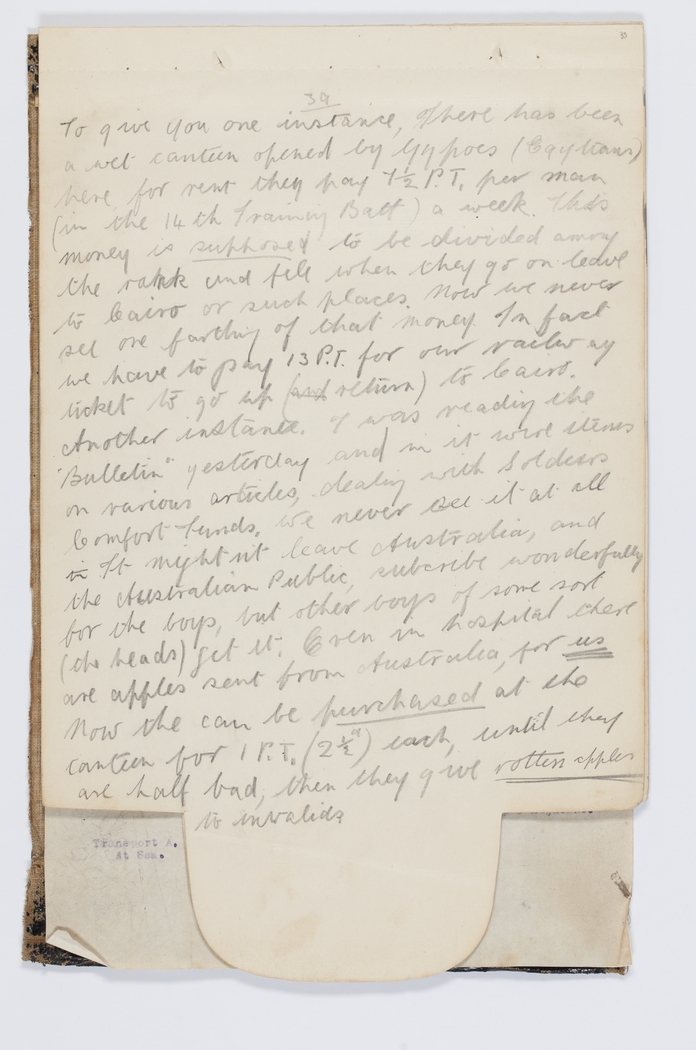 33
39
To give you one instance, There has been
a wet canteen opened by Gyppoes (Egytians)
here, for rent they pay 7½ P.T. per man
(in the 14th Training Batt) a week. This
money is supposed to be divided among
the rakk and file when they go on leave
to Cairo or such places. Now we never
see one farthing of that money. In fact
we have to pay 13 P.T. for our railway
ticket to go up (and return) to Cairo.
Another instance. I was reading the
"Bulletin" yesterday and in it were items
on various articles, dealing with Soldiers
Comfort Funds, we never see it at all
in It might n't leave Australia, and
the Australian Public, subcribe wonderfully
for the boys, but other boys of some sort
(the heads) get it. Even in hospital there
are apples sent from Australia, for us
Now the can be purchased at the
canteen for 1 P.T. (2½d) each, until they
are half bad, then they give rotten apples
to invalids
Transport A.
At Sea.